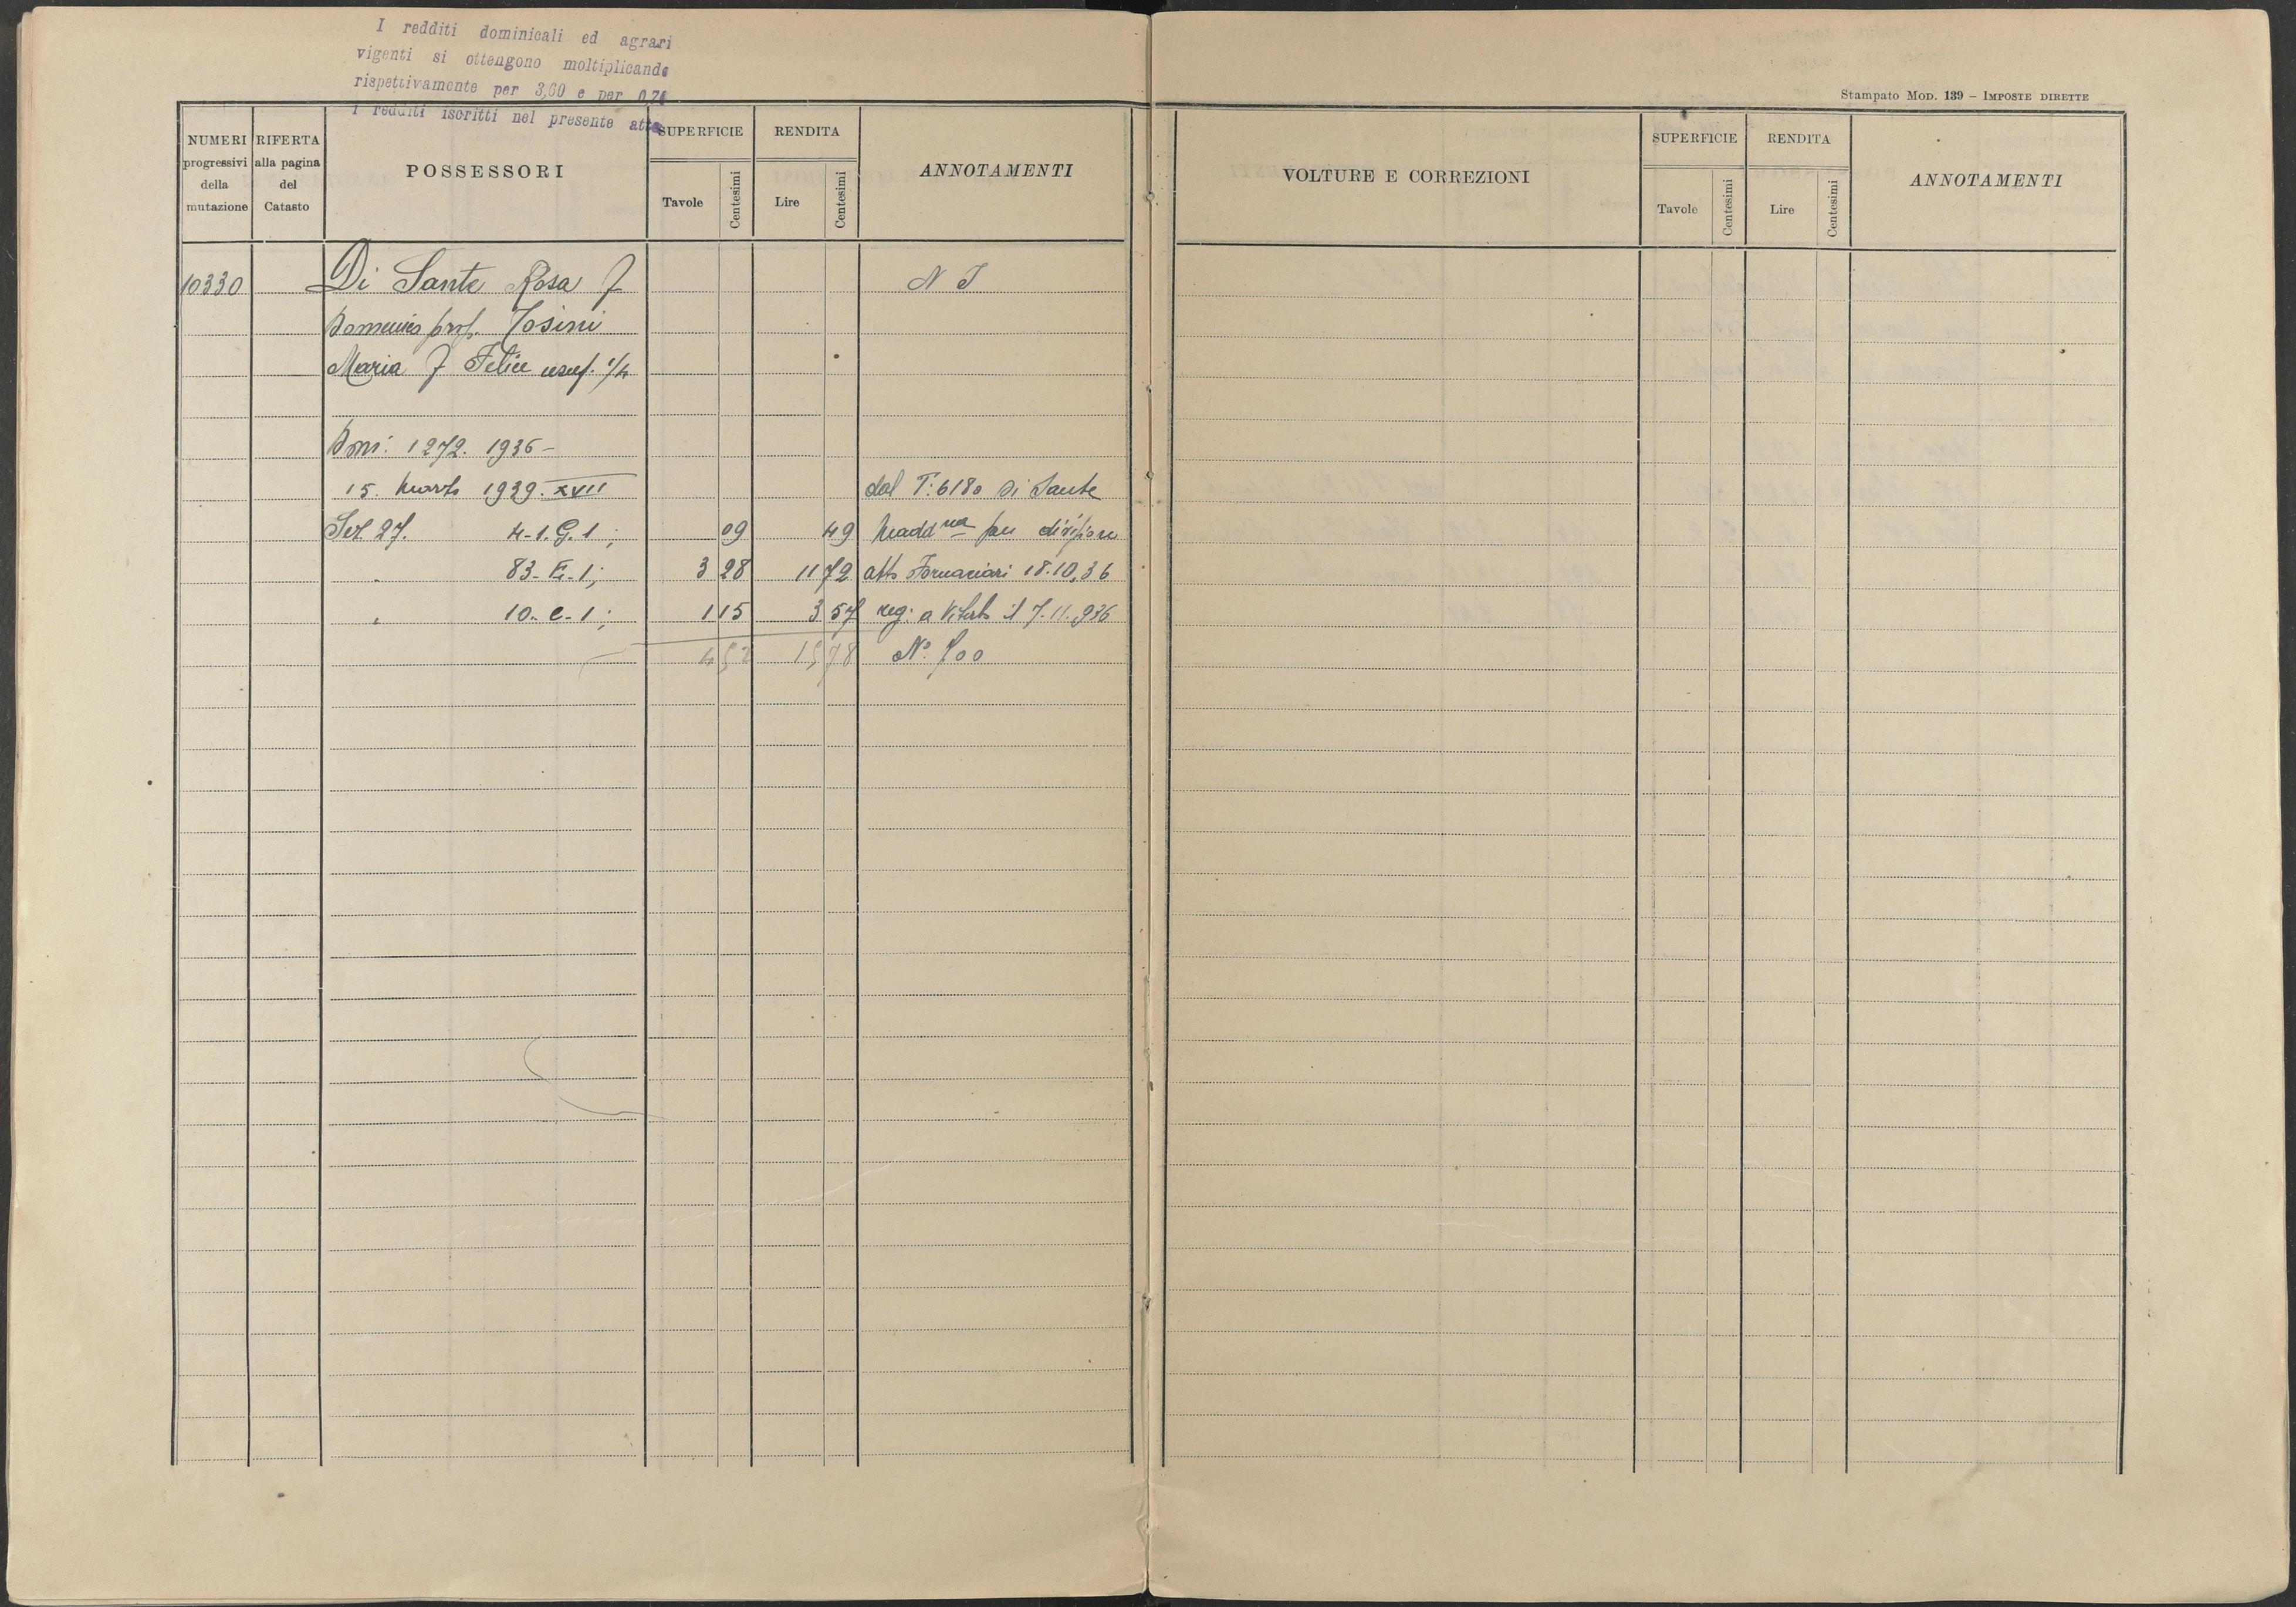 I redditi dominicali ed agrari
vigenti si ottengono moltiplicando
rispettivamente per 3,60 e per 0,74
i redditi iscritti nel presente atto
Stampato Mod. 139 – Imposte dirette
NUMERI progressivi della mutazione
RIFERTA alla pagina del Catasto
POSSESSORI
SUPERFICIE
Tavole
Centesimi
RENDITA
Lire
Centesimi
ANNOTAMENTI
VOLTURE E CORREZIONI
SUPERFICIE
Tavole
Centesimi
RENDITA
Lire
Centesimi
ANNOTAMENTI
10330 Di Sante Rosa f N I
Domenico prop. Tosini
Maria f Felice usuf. 1/4
1272. 1936 –
15. Marzo 1939. XVII dal T: 6180 Di Sante
Sez. 27. 4-1. G. 1; 09 49 Madd na per divisione
" 83-E-1; 3 28 11 72 atto Fornaciari 18.10.36
" 10-C-1; 1 15 3 57 reg. a Viterbo il 7.11.936
4 52 15 78 N° 700